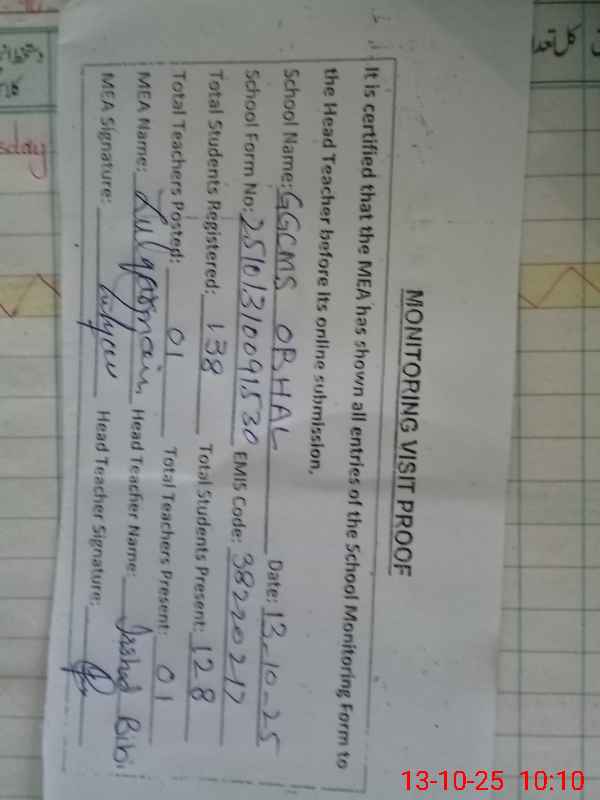 MONITORING VISIT PROOF
It is certified that the MEA has shown all entries of the School Monitoring Form to
the Head Teacher before its online submission.
School Name: GGCMS OBHAL Date: 13-10-25
School Form No: 25101310091530 EMIS Code: 38220217
Total Students Registered: 138 Total Students Present: 128
Total Teachers Posted: 01 Total Teachers Present: 01
MEA Name: Zulqarnain Head Teacher Name: Bibi
MEA Signature: Head Teacher Signature:
sday
13-10-25 10:10